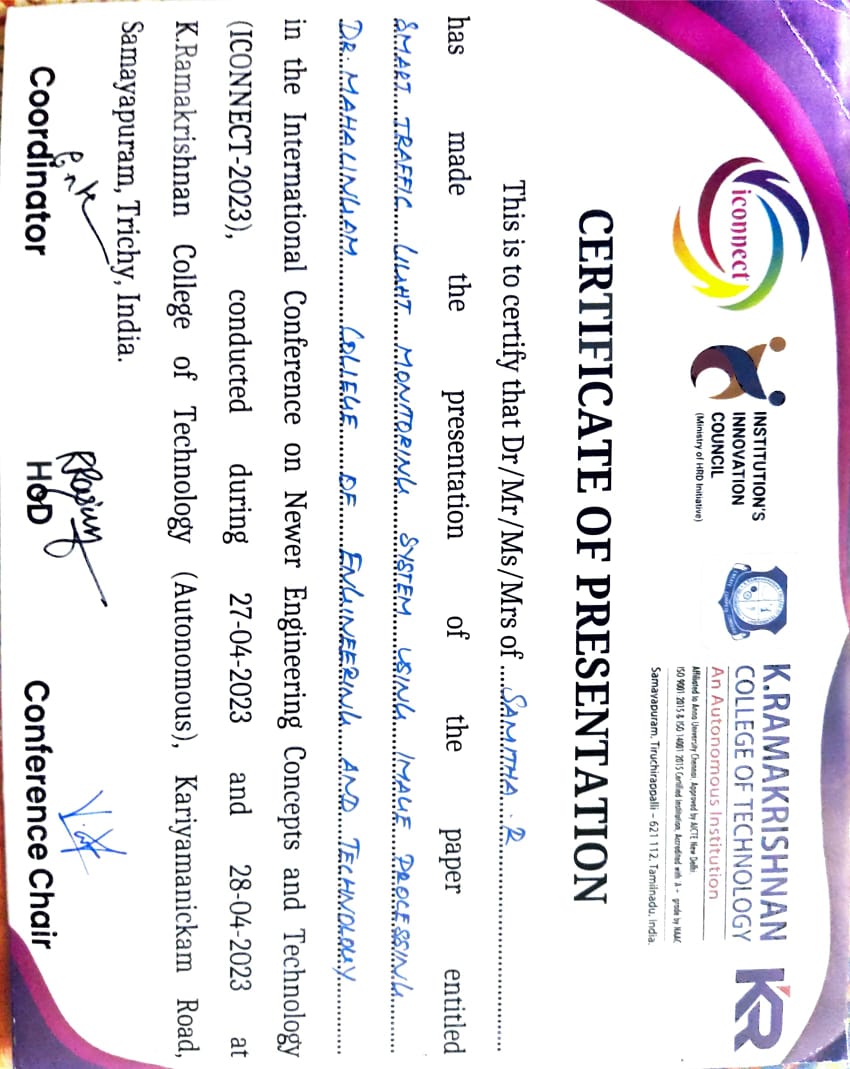 iconnect
INSTITUTION'S
INNOVATION
COUNCIL
(Ministry of HRD Initiative)
K.RAMAKRISHNAN
COLLEGE OF TECHNOLOGY
An Autonomous Institution
Affiliated to Anna University Chennai, Approved by AICTE New Delhi.
ISO 9001:2015 & ISO 14001:2015 Certified Institution, Accredited with 'A+' grade by NAAC
Samayapuram, Tiruchirappalli – 621 112, Tamilnadu, India.
KR
CERTIFICATE OF PRESENTATION
This is to certify that Dr/Mr/Ms/Mrs of ....SAMITHA. R
has made the presentation of the paper entitled
SMART TRAFFIC LIGHT MONITORING SYSTEM USING IMAGE PROCESSING
DR. MAHALINGAM COLLEGE OF ENGINEERING AND TECHNOLOGY
in the International Conference on Newer Engineering Concepts and Technology
(ICONNECT-2023), conducted during 27-04-2023 and 28-04-2023 at
K.Ramakrishnan College of Technology (Autonomous), Kariyamanickam Road,
Samayapuram, Trichy, India.
Coordinator HoD Conference Chair